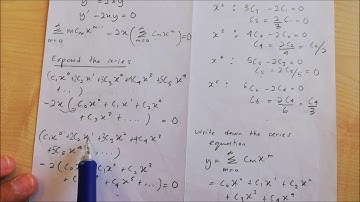 y' = 2xy
y' - 2xy = 0
∑ m Cm x^(m-1) - 2x(∑ Cm x^m) = 0
m=0 m=0
Expand the series
(C1x^0 + 2C2x^1 + 3C3x^2 + 4C4x^3 + 5C5x^4
+ ....)
-2x (C0x^0 + C1x^1 + C2x^2
+ C3x^3 + ...) = 0.
(C1x^0 + 2C2x^1 + 3C3x^2 + 4C4x^3
+5C5x^4 ....)
-2 (C0x^1 + C1x^2 + C2x^3
+ C4x^5 + ...) = 0
x^2 : 3C3 - 2C1 = 0
C3 = 2/3 C1 = 0
x^3 : 4C4 - 2C2 = 0
C4 = 2C2/4 = C2/2
5C5 - 2C3 = 0
6C6 - 2C4 = 0
C6 = 2C4/6 = C4/3
Write down the series
equation
y = ∑ Cm x^m
m=0
= C0x^0 + C1x^1 + C2x^2